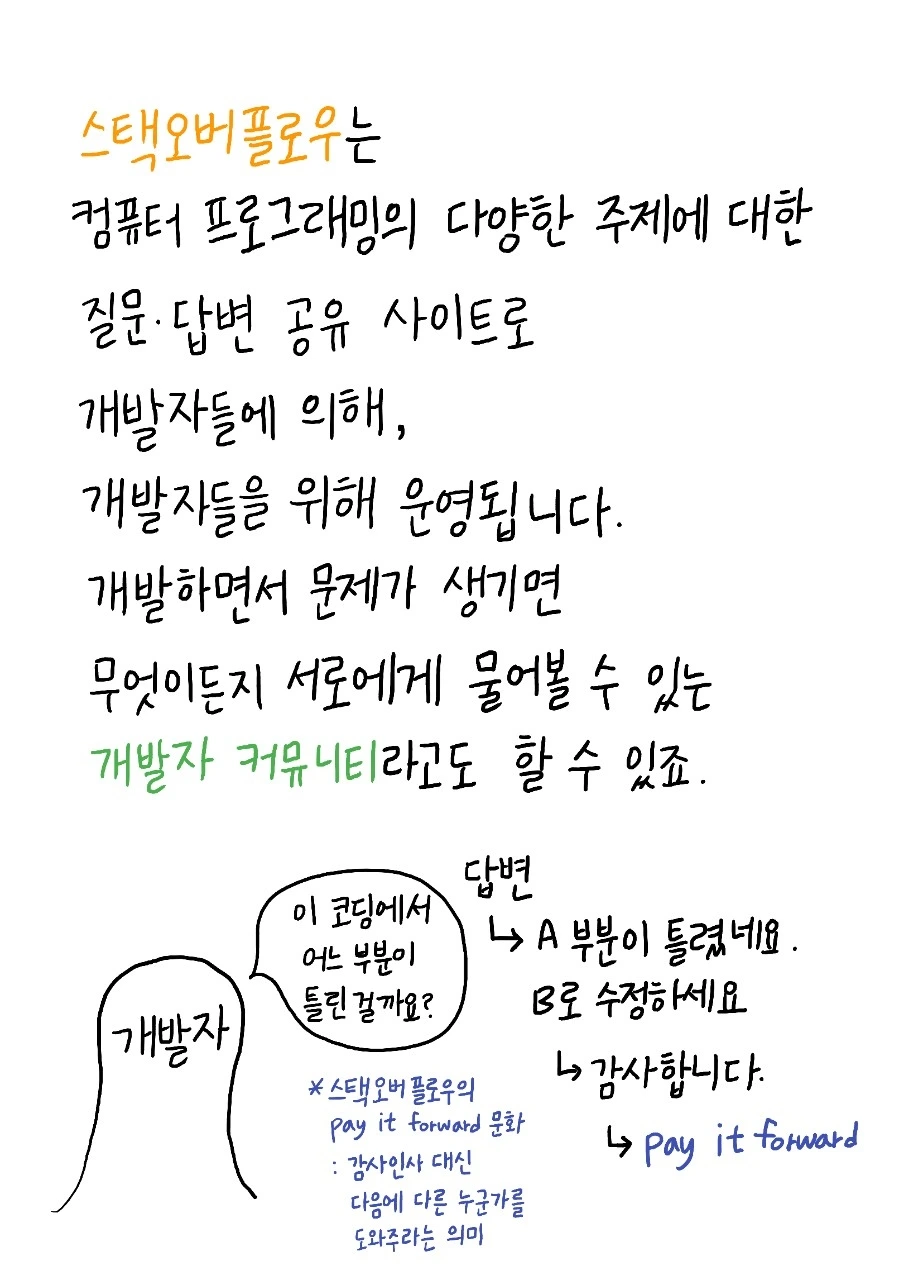 스택오버플로우는
컴퓨터 프로그래밍의 다양한 주제에 대한
질문·답변 공유 사이트로
개발자들에 의해,
개발자들을 위해 운영됩니다.
개발하면서 문제가 생기면
무엇이든지 서로에게 물어볼 수 있는
개발자 커뮤니티라고도 할 수 있죠.
개발자
이 코딩에서
어느 부분이
틀린 걸까요?
답변
↳ A 부분이 틀렸네요.
B로 수정하세요
↳ 감사합니다.
↳ pay it forward
*스택오버플로우의
pay it forward 문화
: 감사인사 대신
다음에 다른 누군가를
도와주라는 의미